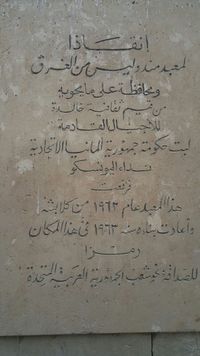 إنقاذا
لمعبد مندوليس من الغرق
ومحافظة على ما يحويه
من قيم ثقافية خالدة
للأجيال القادمة
لبت حكومة جمهورية ألمانيا الاتحادية
نداء اليونسكو
فرفعت
هذا المعبد عام ١٩٦٢ من كلابشة
وأعادت بناءه سنة ١٩٦٣ في هذا المكان
رمزا
للصداقة نحو شعب الجمهورية العربية المتحدة